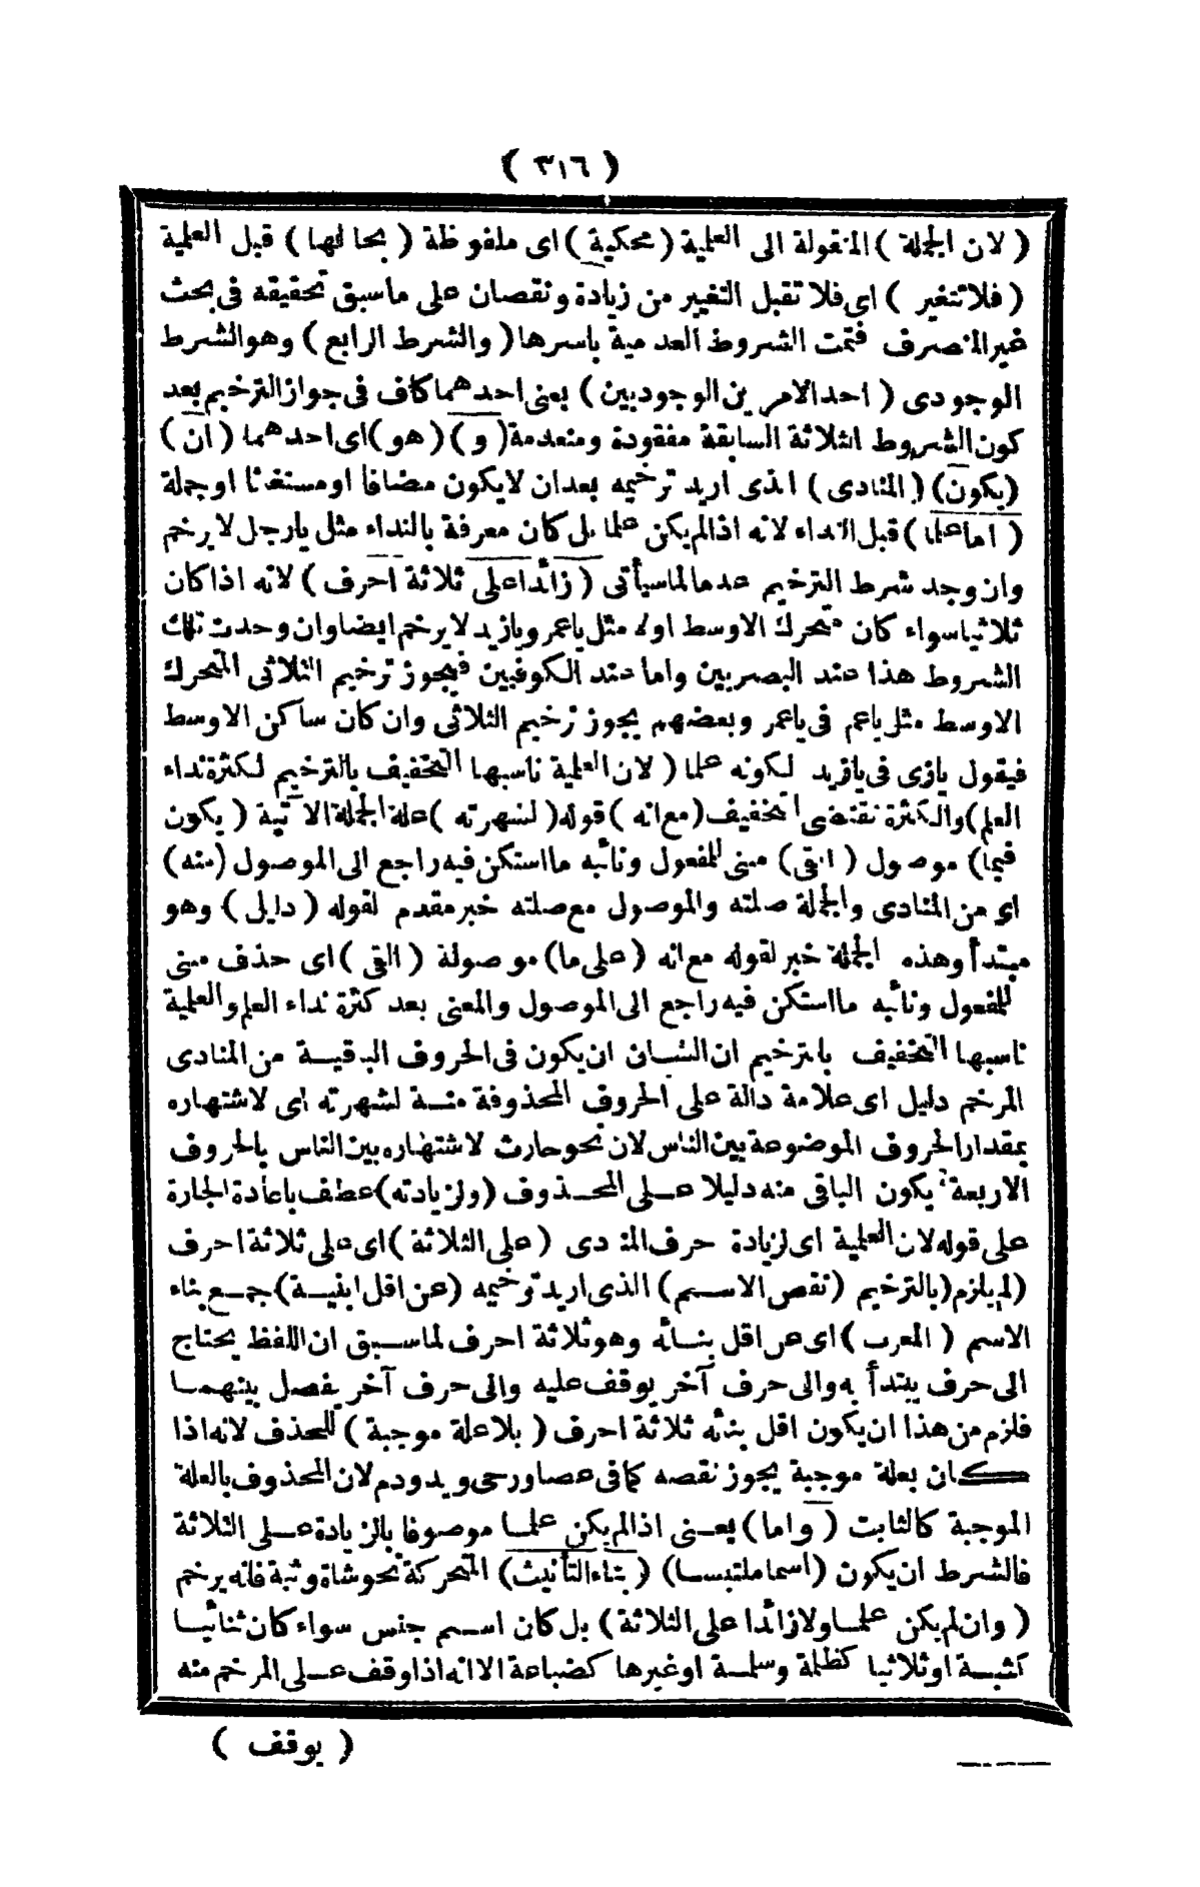 ( ٣١٦ )
( لان الجملة ) المنقولة الى العلمية ( محكية ) اى ملفوظة ( بحالها ) قبل العلمية
( فلا تتغير ) اى فلا تقبل التغيير من زيادة ونقصان على ما سبق تحقيقه فى بحث
غير المنصرف فتمت الشروط العدمية باسرها ( والشرط الرابع ) وهو الشرط
الوجودى ( احد الامرين الوجوديين ) يعنى احدهما كاف فى جواز الترخيم بعد
كون الشروط الثلاثة السابقة مفقودة ومنعدمة ( و ) ( هو ) اى احدهما ( ان )
( يكون ) ( المنادى ) الذى اريد ترخيمه بعد ان لا يكون مضافا او مستغثا او جملة
( اما علما ) قبل النداء لانه اذا لم يكن علما بل كان معرفة بالنداء مثل يارجل لا يرخم
وان وجد شرط الترخيم عدما لما سيأتى ( زائدا على ثلاثة احرف ) لانه اذا كان
ثلاثيا سواء كان متحرك الاوسط اولا مثل ياعمر ويازيد لا يرخم ايضا وان وجدت تلك
الشروط هذا عند البصريين واما عند الكوفيين فيجوز ترخيم الثلاثى المتحرك
الاوسط مثل ياعم فى ياعمر وبعضهم يجوز ترخيم الثلاثى وان كان ساكن الاوسط
فيقول يازى فى يازيد لكونه علما ( لان العلمية ناسبها التخفيف بالترخيم لكثرة نداء
العلم ) والكثرة تقتضى التخفيف ( مع انه ) قوله ( لشهرته ) علة الجملة الآتية ( يكون
فيما ) موصول ( ابقى ) مبنى للمفعول ونائبه ما استكن فيه راجع الى الموصول ( منه )
اى من المنادى والجملة صلته والموصول مع صلته خبر مقدم لقوله ( دليل ) وهو
مبتدأ وهذه الجملة خبر لقوله مع انه ( على ما ) موصولة ( القى ) اى حذف مبنى
للمفعول ونائبه ما استكن فيه راجع الى الموصول والمعنى بعد كثرة نداء العلم والعلمية
ناسبها التخفيف بالترخيم ان الشان ان يكون فى الحروف البقية من المنادى
المرخم دليل اى علامة دالة على الحروف المحذوفة منه لشهرته اى لاشتهاره
بمقدار الحروف الموضوعة بين الناس لان نحو حارث لاشتهاره بين الناس بالحروف
الاربعة يكون الباقى منه دليلا على المحذوف ( ولزيادته ) عطف باعادة الجارة
على قوله لان العلمية اى لزيادة حرف المنادى ( على الثلاثة ) اى على ثلاثة احرف
( لم يلزم ( بالترخيم ( نقص الاسم ) الذى اريد ترخيمه ( عن اقل ابنية ) جمع بناء
الاسم ( المعرب ) اى عن اقل بنائه وهو ثلاثة احرف لما سبق ان اللفظ يحتاج
الى حرف يبتدأ به والى حرف آخر يوقف عليه والى حرف آخر يفصل بينهما
فلزم من هذا ان يكون اقل بنائه ثلاثة احرف ( بلا علة موجبة ) للحذف لانه اذا
كان بعلة موجبة يجوز نقصه كما فى عصا ورحى ويد ودم لان المحذوف بالعلة
الموجبة كالثابت ( واما ) يعنى اذا لم يكن علما موصوفا بالزيادة على الثلاثة
فالشرط ان يكون ( اسما ملتبسا ) ( بتاء التأنيث ) المتحركة نحو شاة وثبة فانه يرخم
( وان لم يكن علما ولا زائدا على الثلاثة ) بل كان اسم جنس سواء كان ثنائيا
كثبة او ثلاثيا كظلمة وسلمة او غيرها كضباعة الا انه اذا وقف على المرخم منه
( يوقف )